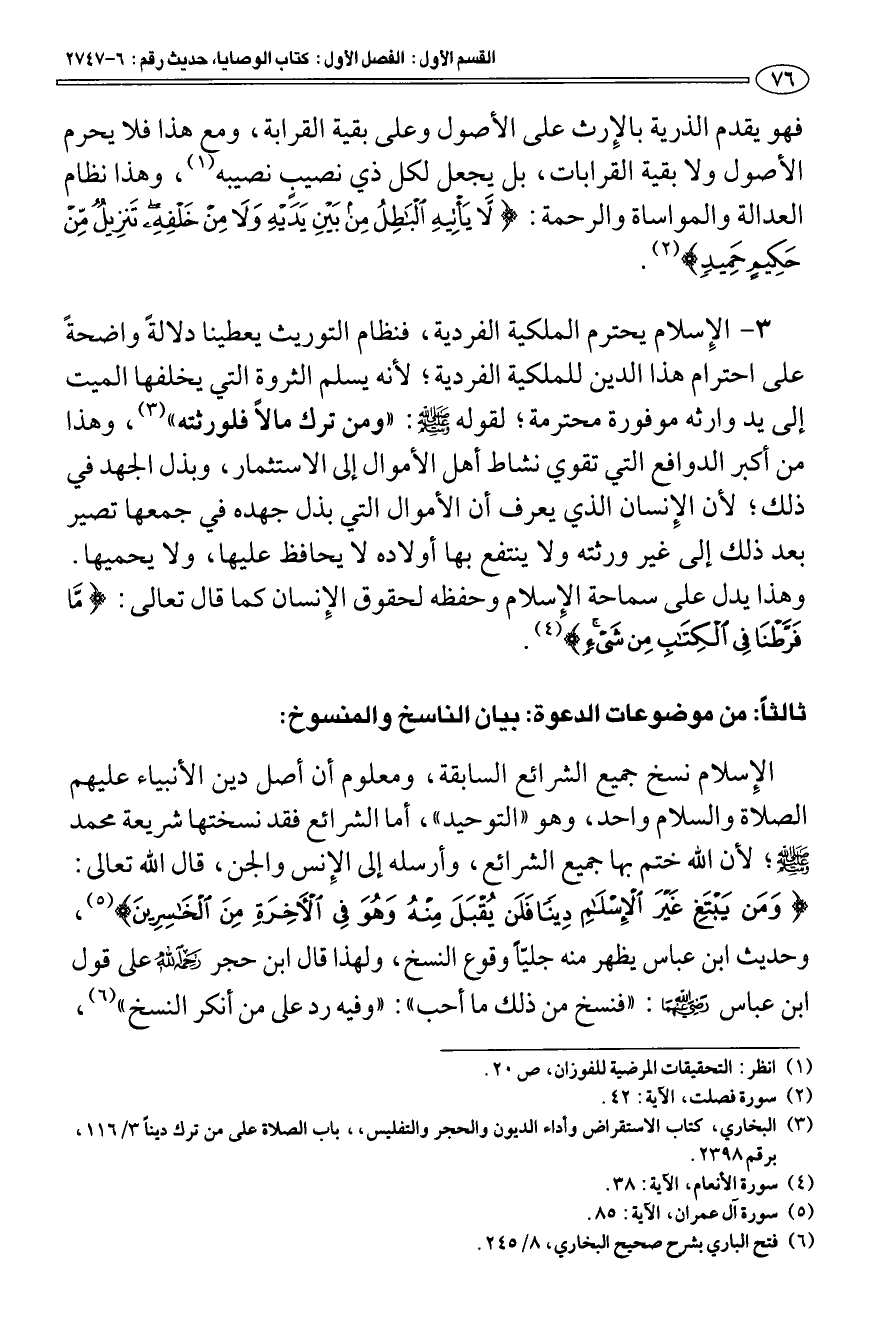 القسم الأول: الفصل الأول: كتاب الوصايا، حديث رقم: ٦-٢٧٤٧
٧٦
فهو يقدم الذرية بالإرث على الأصول وعلى بقية القرابة، ومع هذا فلا يحرم
الأصول ولا بقية القرابات، بل يجعل لكل ذي نصيبٍ نصيبه(١)، وهذا نظام
العدالة والمواساة والرحمة: ﴿ لَّا يَأْتِيهِ ٱلْبَٰطِلُ مِنۢ بَيْنِ يَدَيْهِ وَلَا مِنْ خَلْفِهِۦۖ تَنزِيلٌ مِّنْ
حَكِيمٍ حَمِيدٍ﴾(٢).
٣- الإسلام يحترم الملكية الفردية، فنظام التوريث يعطينا دلالةً واضحةً
على احترام هذا الدين للملكية الفردية؛ لأنه يسلم الثروة التي يخلفها الميت
إلى يد وارثه موفورة محترمة؛ لقوله ﷺ: «ومن ترك مالاً فلورثته»(٣)، وهذا
من أكبر الدوافع التي تقوي نشاط أهل الأموال إلى الاستثمار، وبذل الجهد في
ذلك؛ لأن الإنسان الذي يعرف أن الأموال التي بذل جهده في جمعها تصير
بعد ذلك إلى غير ورثته ولا ينتفع بها أولاده لا يحافظ عليها، ولا يحميها.
وهذا يدل على سماحة الإسلام وحفظه لحقوق الإنسان كما قال تعالى: ﴿ مَّا
فَرَّطْنَا فِى ٱلْكِتَٰبِ مِن شَىْءٍۚ﴾(٤).
ثالثاً: من موضوعات الدعوة: بيان الناسخ والمنسوخ:
الإسلام نسخ جميع الشرائع السابقة، ومعلوم أن أصل دين الأنبياء عليهم
الصلاة والسلام واحد، وهو «التوحيد»، أما الشرائع فقد نسختها شريعة محمد
ﷺ؛ لأن الله ختم بها جميع الشرائع، وأرسله إلى الإنس والجن، قال الله تعالى:
﴿ وَمَن يَبْتَغِ غَيْرَ ٱلْإِسْلَٰمِ دِينًا فَلَن يُقْبَلَ مِنْهُ وَهُوَ فِى ٱلْأَخِرَةِ مِنَ ٱلْخَٰسِرِينَ﴾(٥)،
وحديث ابن عباس يظهر منه جليّاً وقوع النسخ، ولهذا قال ابن حجر رحمه الله على قول
ابن عباس رضي الله عنهما: «فنسخ من ذلك ما أحب»: «وفيه رد على من أنكر النسخ»(٦)،
(١) انظر: التحقيقات المرضية للفوزان، ص ٢٠.
(٢) سورة فصلت، الآية: ٤٢.
(٣) البخاري، كتاب الاستقراض وأداء الديون والحجر والتفليس،، باب الصلاة على من ترك ديناً ٣/ ١١٦،
برقم ٢٣٩٨.
(٤) سورة الأنعام، الآية: ٣٨.
(٥) سورة آل عمران، الآية: ٨٥.
(٦) فتح الباري بشرح صحيح البخاري، ٨/ ٢٤٥.